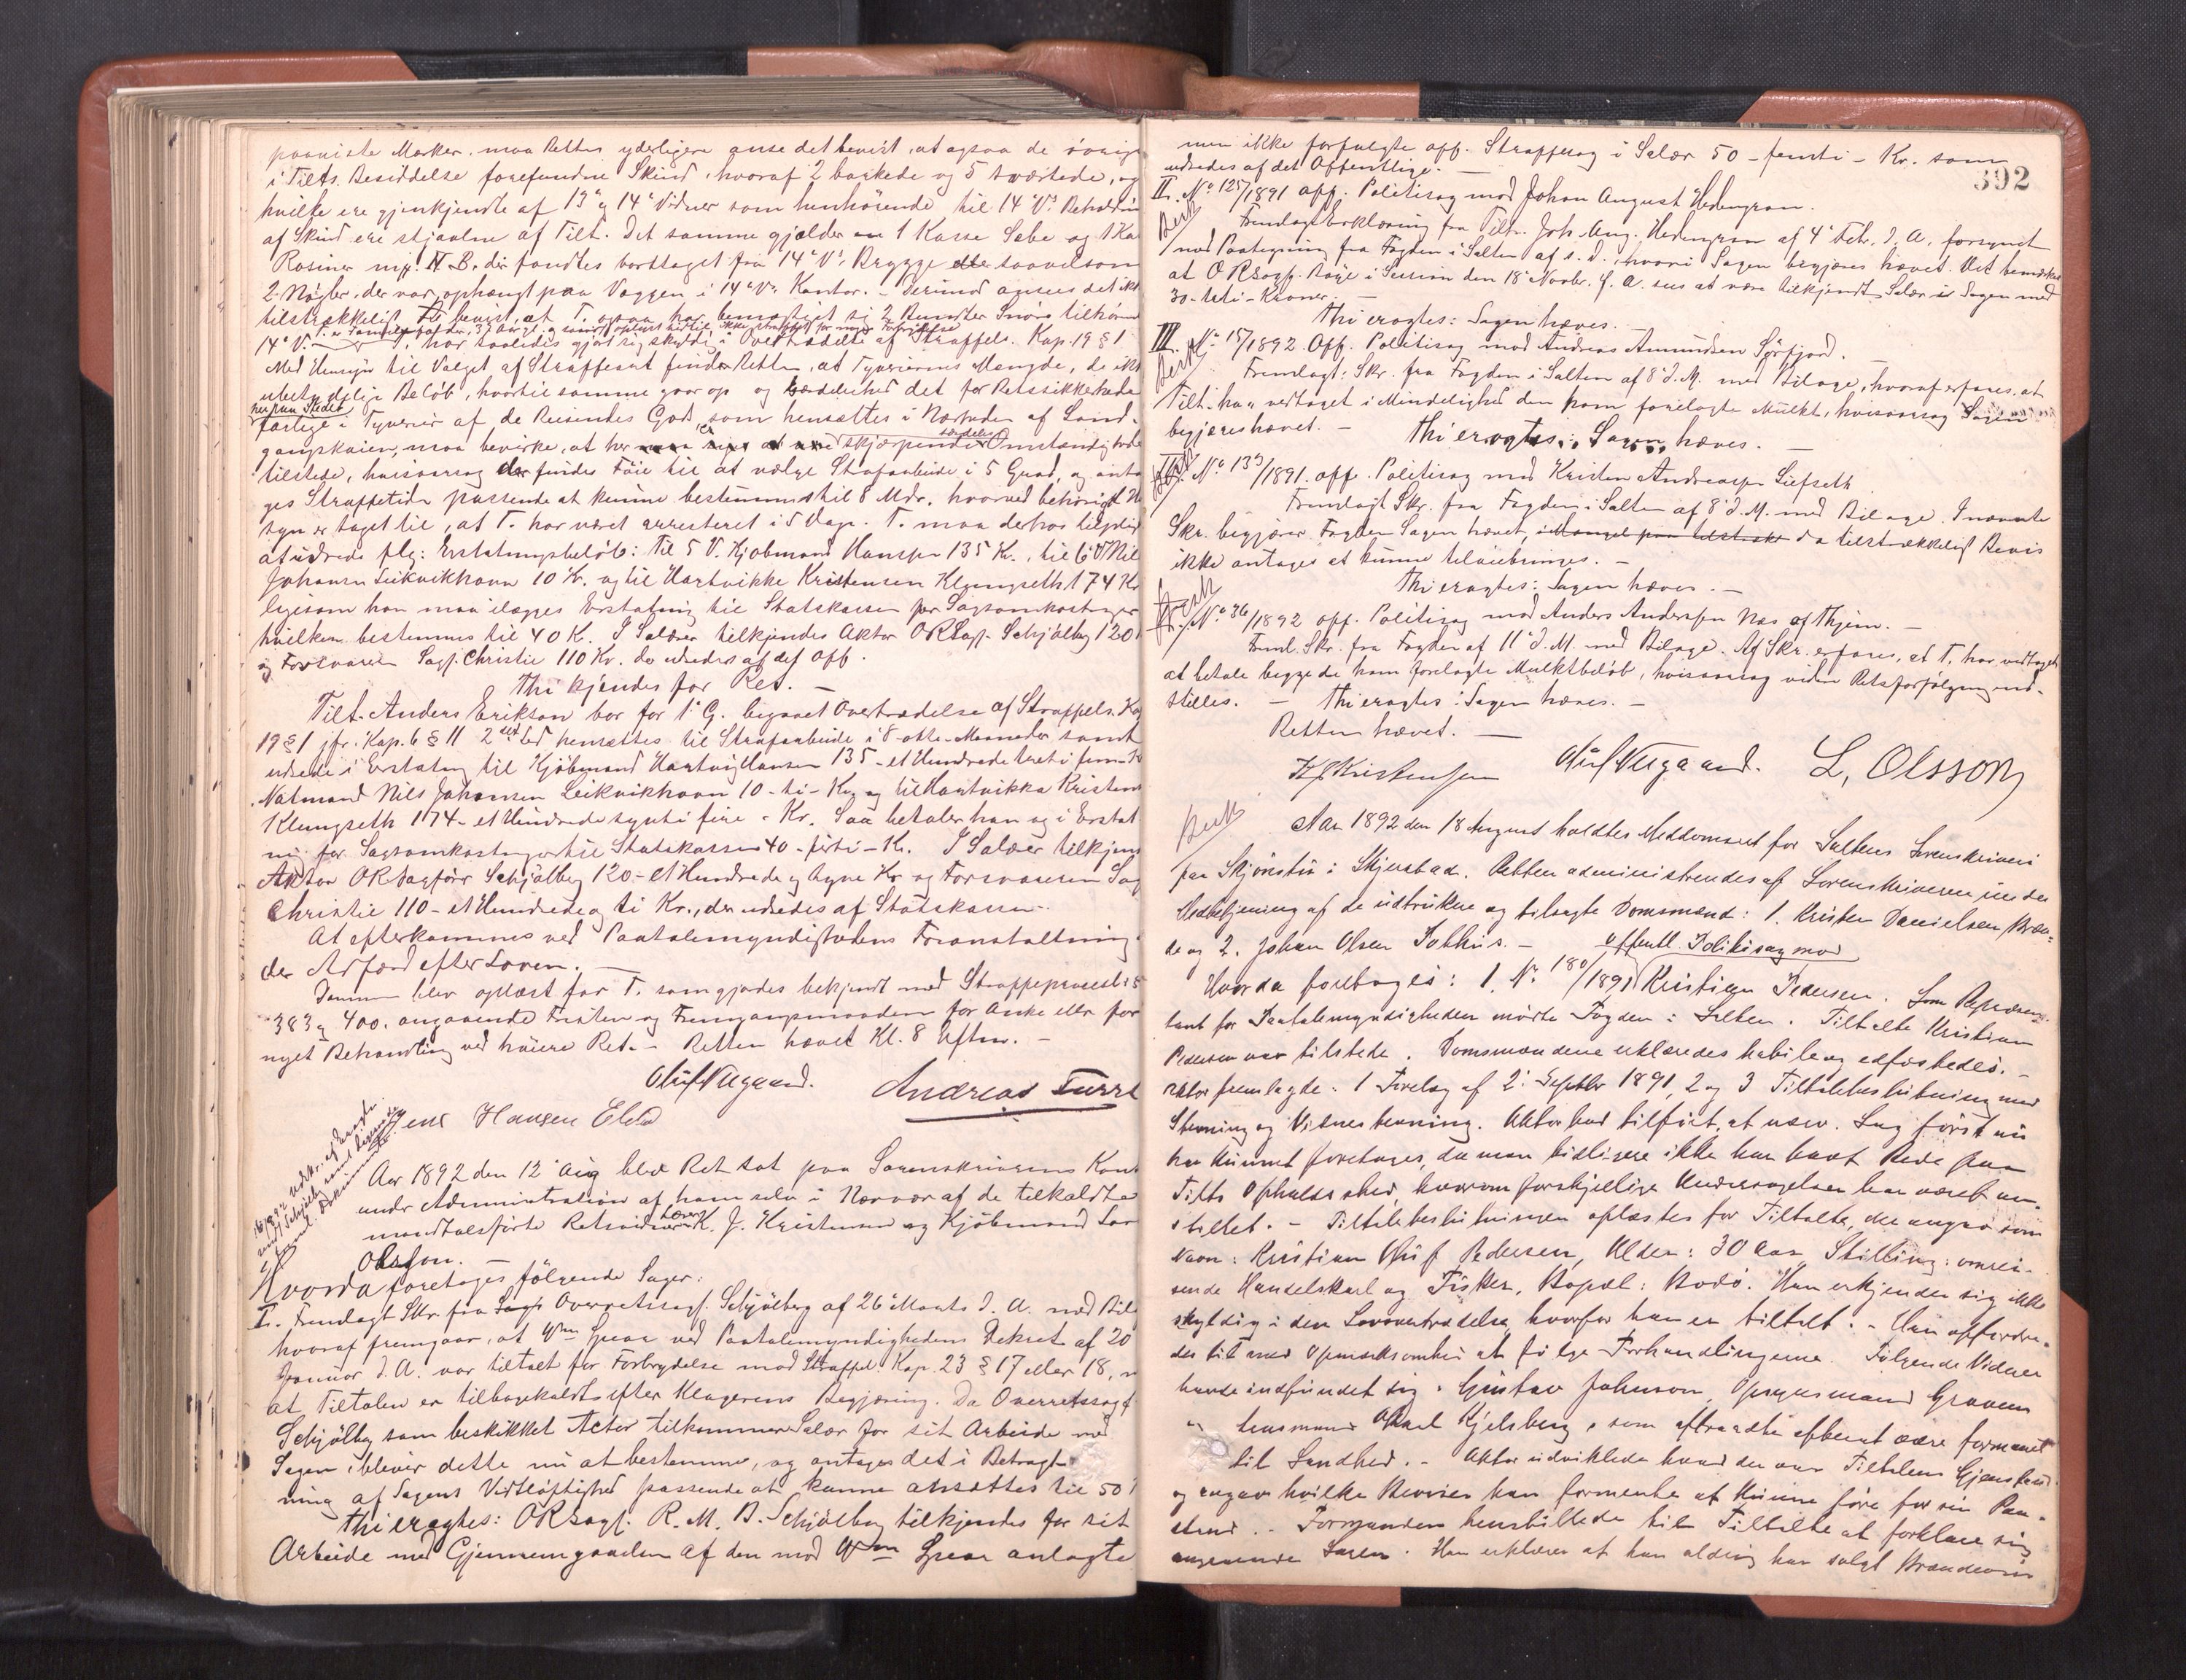 paaviste Mærker. maa Retten yderligere anse det bevist, at ogsaa de øvrige
i Tilts. Besiddelse forefundne Skind, hvoraf 2 barkede og 5 sværtede, og
hvilke ere gjenkjendte af 13de og 14de Vidner som henhørende til 14de Vs Beholdnin
af Skind ere stjaalne af Tilt. Det samme gjælder en 1 Kasse Sæbe og 1 Ka
Rosiner mrk. N. B. der fandtes borttaget fra 14de Vs Brygge saavelsom
2 Nøgler, der var ophængt paa Væggen i 14de Vs Kontor. – Derimod ansees det ikke
tilstrækkeligt bevist, at T. ogsaa har bemægtiget sig 2 Bundter Snøre tilhøren
14de V. – T. har saaledes gjort sig skyldig i Overtrædelse af Straffels. Kap. 19 § 1
Med Hensyn til Valget af Straffesat finder Retten, at Tyveriernes Mængde, de ikke
ubetydelige Beløb, hvortil samme gaar op og særdeleshed det for Retssikkerheden
her paa Stedet
farlige i Tyverier af de Reisendes Gods som hensættes i Nærheden af Land-
gangskaien, maa bevirke, at her særdeles skjærpende Omstændigheder
tilstede, hvisaarsag der findes Føie til at vælge Strafarbeide i 5 Grad, og anta
ges Straffetiden passende at kunne bestemmes til 8 Mdr. hvorved behørigt H
syn er taget til, at T. har været arresteret i 5 Dage. T. maa derhos tilpligt
at udrede flg: Erstatningsbeløb: Til 5 V. Kjøbmand Hansen 135 Kr., til 6 V Nils
Johansen Leikvikhavn 10 Kr. og til Hartvikke Kristensen Klungseth 174 Kr
ligesom han maa ilægges Erstatning til Statskassen for Sagsomkostninger
hvilken bestemmes til 40 K. I Salær tilkjendes Aktor ORSagf. Schjølberg 120
og Forsvareren Sagf. Christie 110 Kr. der udredes af det Off.
Thi kjendes for Ret. –
Tilt. Anders Erikson bør for 1ste G. begaaet Overtrædelse af Straffels. Kap
19 § 1 jfr. Kap. 6 § 11 2det Led hensættes til Strafarbeide i 8-otte-Maaneder samt
udrede i Erstatning til Kjøbmand Hartvig Hansen 135 – et Hundrede treti fem – Kr
Natmand Nils Johansen Leikvikhavn 10 – ti – Kr. og til Hartvikka Kristens
Klungseth 174 – et Hundrede sytti fire – Kr. Saa betaler han og i Erstat
ning for Sagsomkostninger til Statskassen 40 – firti – Kr. I Salær tilkjendes
Aktor ORSagfører Schjølberg 120 – et Hundrede og tyve Kr. og Forsvareren Sag
Christie 110 – et Hundrede og ti Kr., der udredes af Statskassen.
At efterkommes ved Paatalemyndighedens Foranstaltning
der Adfærd efter Loven. –
Dommen blev oplæst for T. som gjordes bekjendt med Straffeproceslovens
383 og 400. angaaende Fristen og Fremgangsmaaden for Anke eller for
nyet Behandling ved høiere Ret. – Retten hævet Kl. 8 Eftm. –
Oluf Aagaard. Andreas
Jens Hansen
Aar 1892 den 12te Aug blev Ret sat paa Sorenskriverens Kont
under Administration af ham selv i Nærvær af de tilkaldte
mandtalsførte Retsvidner K. J. Kristensen og Kjøbmand
Olsson. –
Hvorda foretoges følgende Sager:
I. Fremlagt Skr. fra Overretssagf. Schjølberg af 26 Marts d. A. med Bil
hvoraf fremgaar, at Wm Spear ved Paatalemyndighedens Dekret af 20
Januar d. A. var tiltalt for Forbrydelse mod Straffel. Kap. 23 § 17 eller 18,
at Tiltalen er tilbagekaldt efter Klagerens Begjæring. Da Overretssagf
Schjølberg som beskikket Actor tilkommer Salær for sit Arbeide med
Sagen, bliver dette nu at bestemme, og antages det i Betragt
ning af Sagens Vidtløftighed passende at kunne ansættes til 50
Thi eragtes: ORSagf. R. M. B. Schjølberg tilkjendes for sit
Arbeide med Gjennemgaaelsen af den mod Wm Spear anlagte
392
men ikke forfulgte off. Straffesag i Salær 50 – femti – Kr. som
udredes af det Offentlige. –
II. No 125/1891 off. Politisag mod Johan August Hedengran.
Fremlagt Erklæring fra Tilt. Joh. Aug. Hedengran af 4de Febr. d. A. forsynet
med Paategning fra Fogden i Salten af s. d., hvori Sagen begjæres hævet. Det bemærkes
at ORSagf. i Session den 18de Novbr. f. A. sees at være tilkjendt Salær i Sagen med
30 – treti – Kroner. –
Thi eragtes: Sagen hæves. –
III. No 15/1892 Off. Politisag mod Andreas Amundsen Sørfjord.
Fremlagt: Skr. fra Fogden i Salten af 8de d. M. med Bilage, hvoraf erfares, at
Tilt. har vedtaget i Mindelighed den ham forelagte Mulkt, hvisaarsag Sagen
begjæres hævet. – Thi eragtes: Sagen hæves. –
No 139/1891. off. Politisag mod Kristen Andreassen Liefseth
Fremlagt Skr. fra Fogden i Salten af 8de d. M. med Bilage. I nævnte
Skr. begjærer Fogden Sagen hævet, i Mangel paa tilstræk da tilstrækkeligt Bevis
ikke antages at kunne tilveiebringes. –
Thi eragtes: Sagen hæves. –
No 36/1892 off. Politisag mod Anders Anderssen Næs af Thjem. –
Freml. Skr. fra Fogden af 11te d. M. med Bilage. Af Skr. erfares, at T. har vedtaget
at betale begge de ham forelagte Mulktbeløb, hvisaarsag videre Retsforfølgning ind-
stilles. – Thi eragtes: Sagen hæves. –
Retten hævet. –
K J Kristensen Oluf Aagaard. L, Olsson
Aar 1892 den 18 August holdtes Meddomsret for Saltens Sorenskriveri
paa Skjønstu i Skjerstad. Retten administreredes af Sorenskriveren under
Medbetjening af de udtrukne og tilsagte Domsmænd: 1. Kristen Danielsen
og 2. Johan Olsen –
offentl. Politisag mod
Hvorda foretoges: 1. No 180/1891 Kristian Pedersen. Som Repræsen-
tant for Paatalemyndigheden mødte Fogden i Salten. Tiltalte Kristian
Pedersen var tilstede. Domsmændene erklæredes habile og edfæstedes. –
Aktor fremlagde: 1 Forelæg af 2. Septbr 1891, 2 og 3 Tiltalebeslutning med
Stevning og Vidnestevning. Aktor bad tilført, at nærv. Sag først nu
har kunnet foretages, da man tidligere ikke har havt Rede paa
Tilts Opholdssted, hvorom forskjellige Undersøgelser har været an-
stillet. – Tiltalebeslutningen oplæstes for Tiltalte, der angav som
Navn: Kristian Oluf Pedersen, Alder: 30 Aar, Stilling: omrei-
sende Handelskarl og Fisker, Bopæl: Bodø. Han erkjender sig ikke
skyldig i den Lovovertrædelse, hvorfor han er tiltalt. – Han opfordre-
des til med Opmærksomhed at følge Forhandlingerne. Følgende Vidner
havde indfundet sig: Gustav Johnson, Opsynsmand Graven
og Lensmand Karl Kjelsberg, som aftraadte efter at være formanet
til Sandhed. – Aktor udviklede hvad der var Tiltalens Gjenstand
og angav hvilke Beviser han formente at kunne føre for sin Paa-
stand. – Formanden henstillede til Tiltalte at forklare sig
angaaende Sagen. Han erklærer at han aldrig har solgt Brændevin